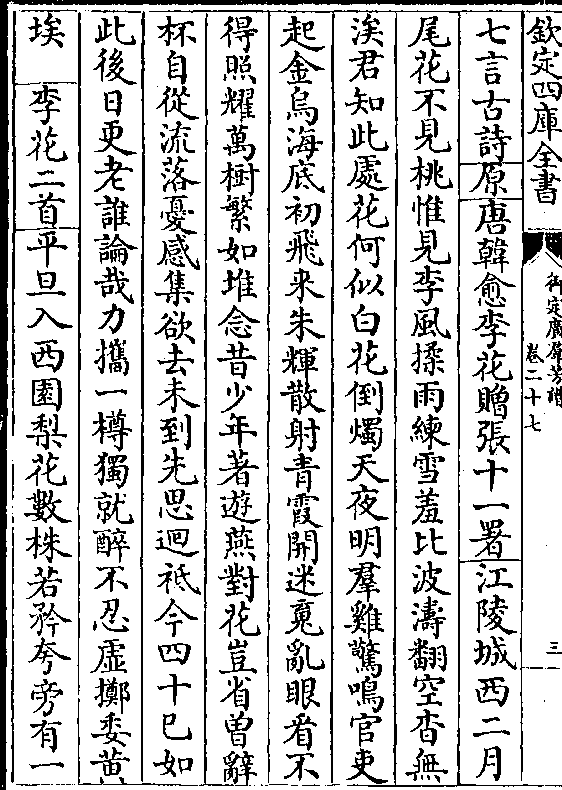 欽定四庫全書
御定廣群芳譜
卷二十七
三
七言古詩原唐韓愈李花贈張十一署江陵城西二月
尾花不見桃惟見李風揉雨練雪羞比波濤翻空杳無
涘君知此處花何似白花倒燭天夜明羣雞驚鳴官吏
起金烏海底初飛來朱輝散射青霞開迷䰟亂眼看不
得照耀萬樹繁如堆念昔少年著遊燕對花豈省曾辭
杯自從流落憂感集欲去未到先思迴祗今四十已如
此後日更老誰論哉力攜一樽獨就醉不忍虛擲委黄
埃　李花二首平旦入西園梨花數株若矜夸旁有一